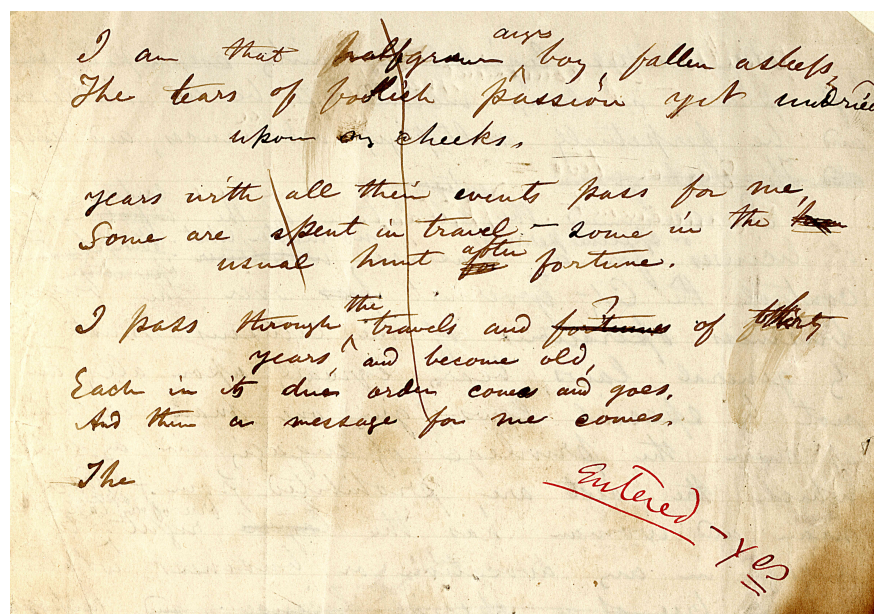 I am that halfgrown angry boy, fallen asleep,
The tears of foolish passion yet undried
upon my cheeks.
years with all their events pass for me,
Some are spent in travel – some in the
usual hunt after fortune.
I pass through the travels and fortunes of thirty
years and become old,
Each in its due order comes and goes,
And then a message for me comes.
The
Entered – Yes